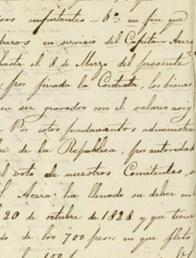 importantes — 6º en fin que
en servicio del Capitan Acero
hasta el 8 de Marzo del presente
por finada la Contrata, los bienes
en ser gravados con el salario
Por estos fundamentos administra
de la Republica, por autoridad
voto de nuestros Comitentes, s
Acero ha llenado su deber en
20 de octubre de 1828 y que tiene
de los 700 pesos en que fletó